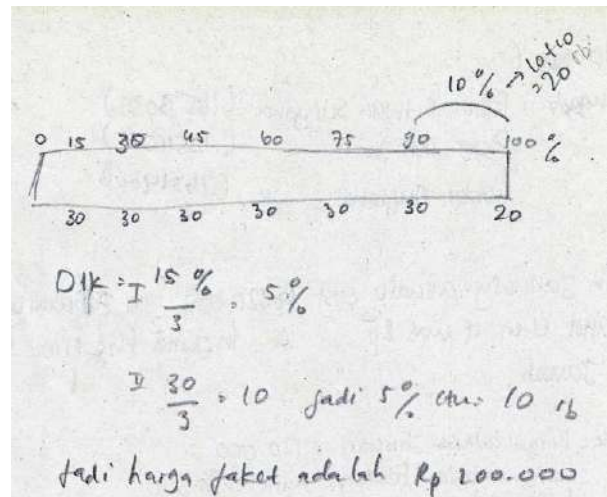 10 % → Lotio
= 20 rb
0 15 30 45 60 75 90 100 %
30 30 30 30 30 30 20
DIk = I 15 % / 3 = 5 %
II 30 / 3 = 10 jadi 5 % itu = 10 rb
jadi harga paket adalah Rp 200.000